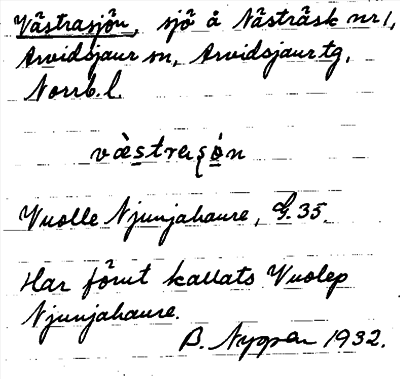 Västrasjön, sjö å Nästräsk nr 1,
Arvidsjaur sn, Arvidsjaur tg,
Norrb.l.
Vuolle Njunjahaure, G. 35.
Har förut kallats Vuolep
Njunjahaure.
B. Nyman 1932.